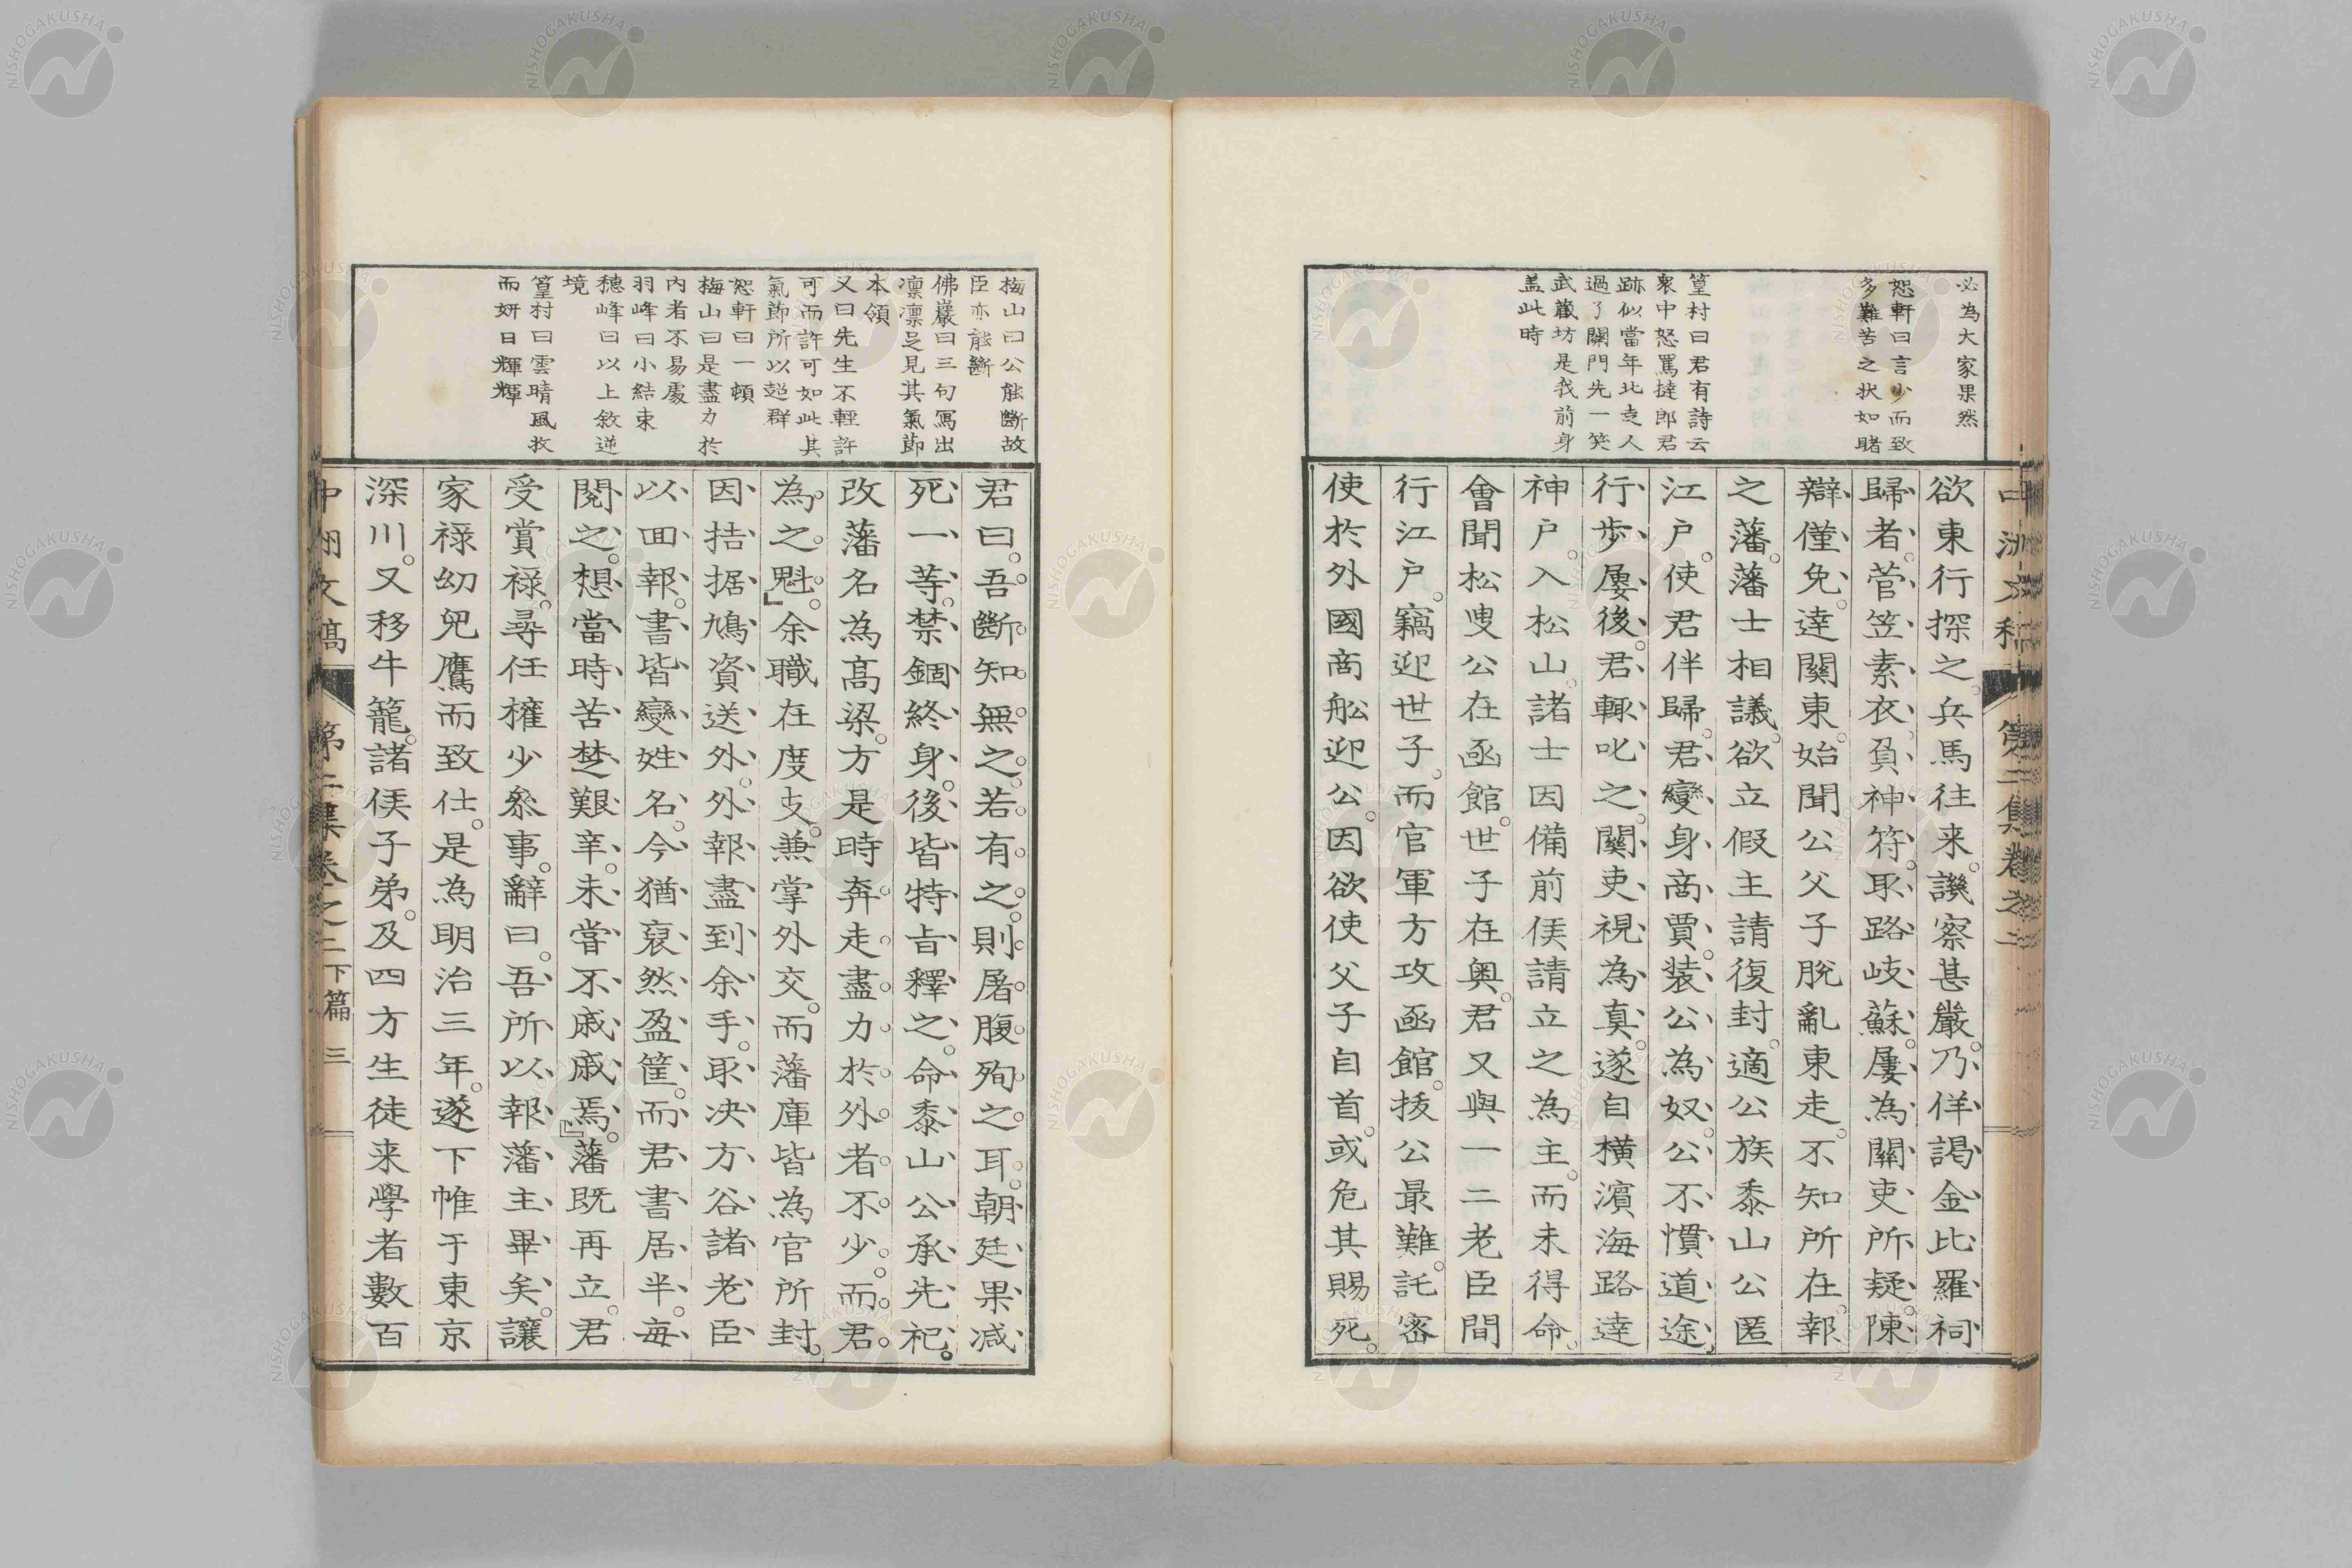 必為大家果然
恕軒曰言少而致
多難苦之狀如睹
篁村曰君有詩云
衆中怒罵撻郎君
跡似當年北走人
過了關門先一笑
武藏坊是我前身
盖此時
欲東行探之。兵馬往来。譏察甚嚴。乃佯謁金比羅祠
歸者。菅笠素衣。負神符。取路岐蘇。屢為關吏所疑。陳
辯僅免。達關東。始聞公父子脫亂東走。不知所在。報
之藩。藩士相議。欲立假主請復封。適公族黍山公匿
江户。使君伴歸。君變身商賈。裝公為奴。公不慣道途。
行步屢後。君輙叱之。關吏視為真。遂自橫濱海路達
神户。入松山。諸士因備前侯請立之為主。而未得命。
會聞松叟公在函館。世子在奥。君又與一二老臣間
行江户。竊迎世子。而官軍方攻函館。拔公最難。託密
使於外國商舩迎公。因欲使父子自首。或危其賜死。
中洲文稿 第二集卷之二
梅山曰公能斷故
臣亦能斷
佛巖曰三句寫出
凛凛足見其氣節
本領
又曰先生不輕許
可而許可如此其
氣節所以超群
恕軒曰一頓
梅山曰是盡力於
内者不易處
羽峰曰小結束
穗峰曰以上敘逆
境
篁村曰雲晴風收
而妍日輝輝
君曰。吾斷知無之。若有之。則屠腹殉之耳。朝廷果减
死一等。禁錮終身。後皆特旨釋之。命黍山公承先祀。
改藩名為高梁。方是時奔走盡力於外者不少。而君
為之魁。」余職在度支。兼掌外交。而藩庫皆為官所封。
因拮据鳩資送外。外報盡到余手。取决方谷諸老臣
以回報。書皆變姓名。今猶裒然盈筐。而君書居半。每
閱之。想當時苦楚艱辛。未嘗不戚戚焉。』藩既再立。君
受賞禄。尋任權少叅事。辭曰。吾所以報藩主畢矣。讓
家禄幼兒鷹而致仕。是為明治三年。遂下帷于東京
深川。又移牛籠。諸侯子弟。及四方生徒来學者數百
中洲文稿 第二集卷之二下篇 三